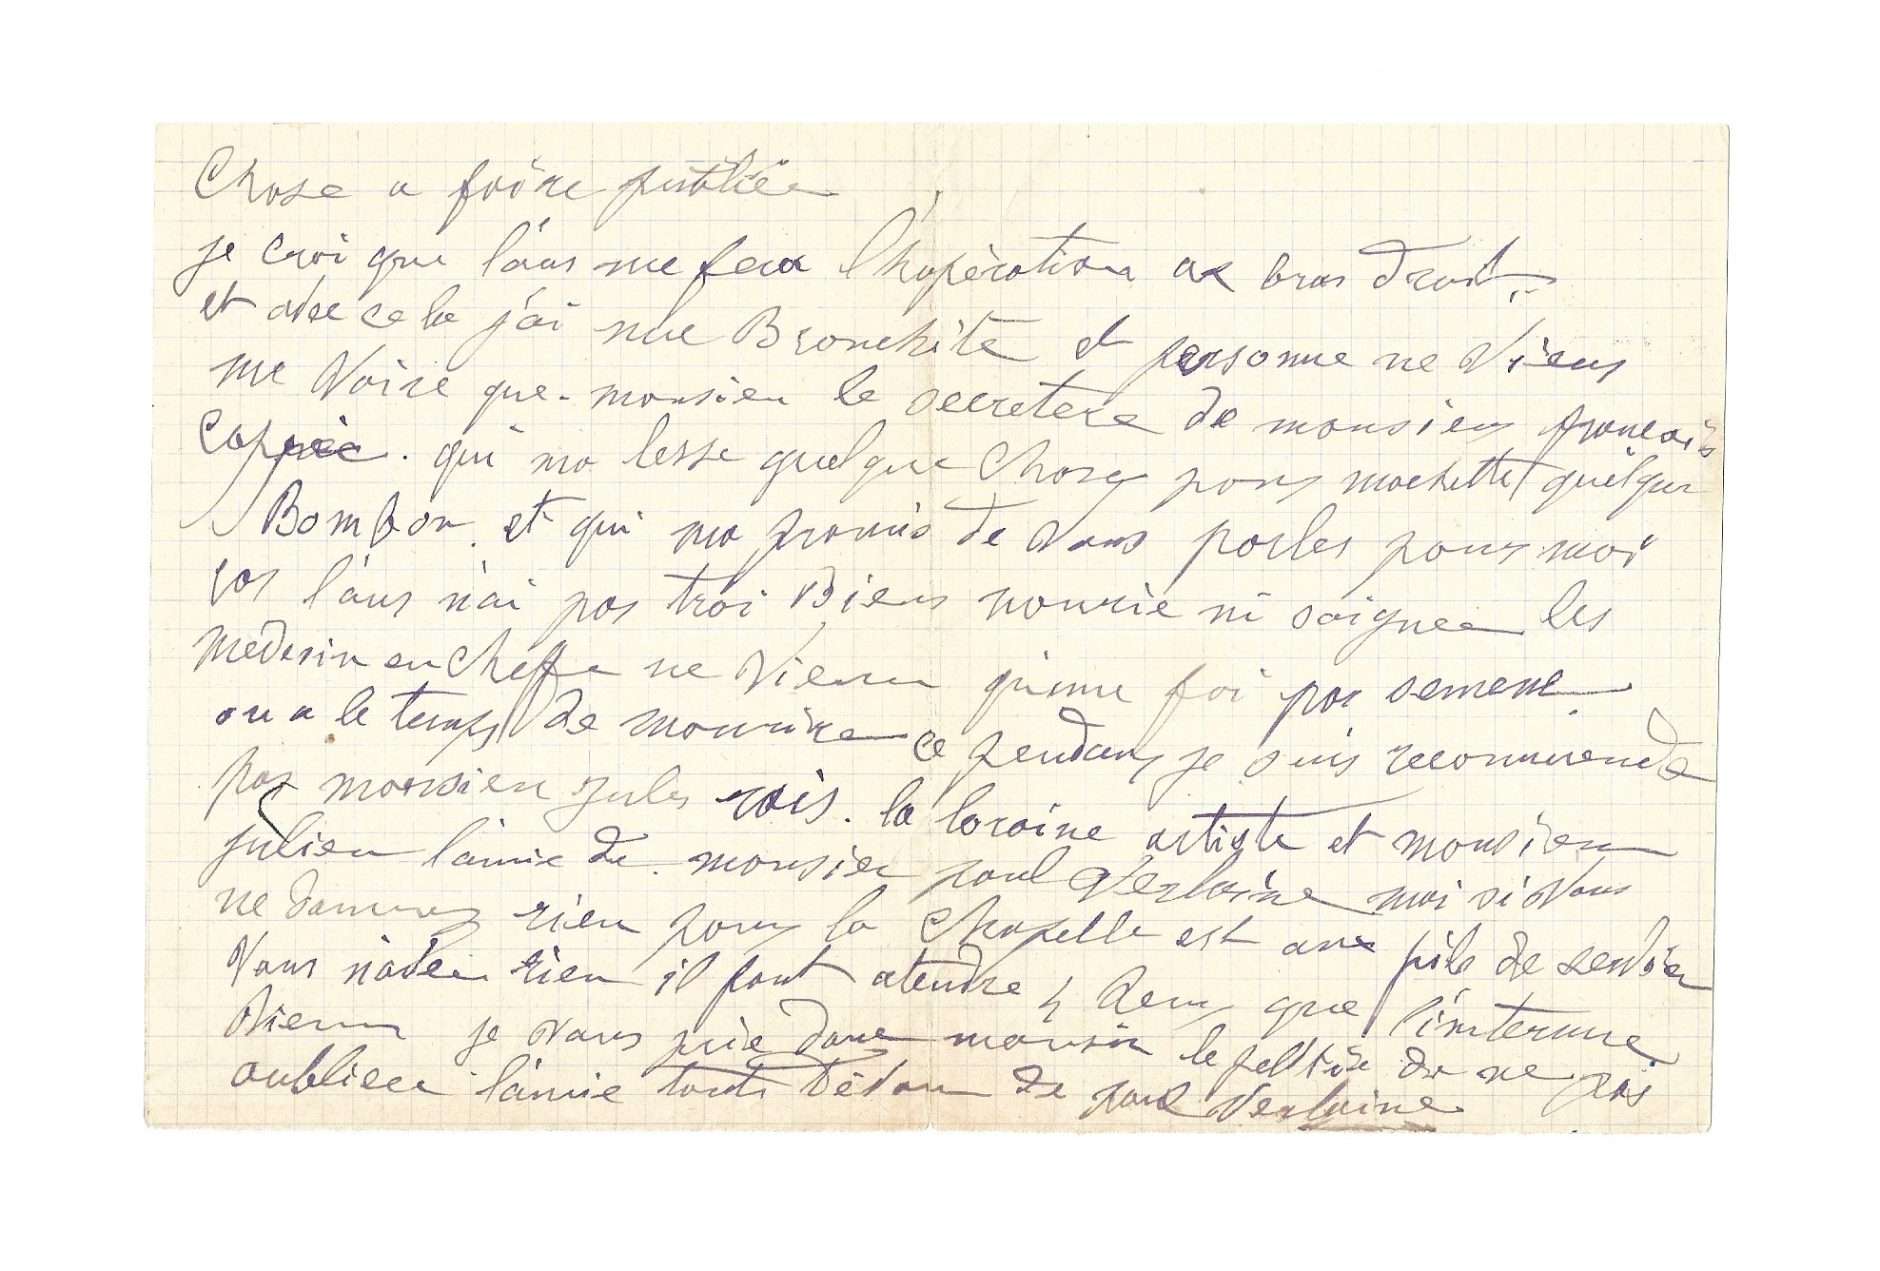 Chose a foire publiée
je croi que l'ous me fera l'hopération au bras droit
et avec ce la j'ai une Bronchite et personne ne viens
me voire que monsieu le secretere de monsieur françois
Copeé. qui ma lesse quelque chose pour machetter quelque
Bombon. et qui ma promis de vous parler pour moi
car l'ous n'ai pas troi Bien nourie ni soignee les
medesin en cheffe ne vienn qu'une foi par semene.
on a le temps de mourire ce pendant je suis recommende
par monsieu jules rois. la loraine artiste et monsieu
julien l'amie de monsieu paul Verlaine moi si vous
ne donnez rien pour la chapelle est aux file de service
vous n'avée rien il faut atendre 4 heur que l'interne
vienn je vous prie donc monsieu le peltié de ne pas
oubliee l'amie tout dévou de paul Verlaine